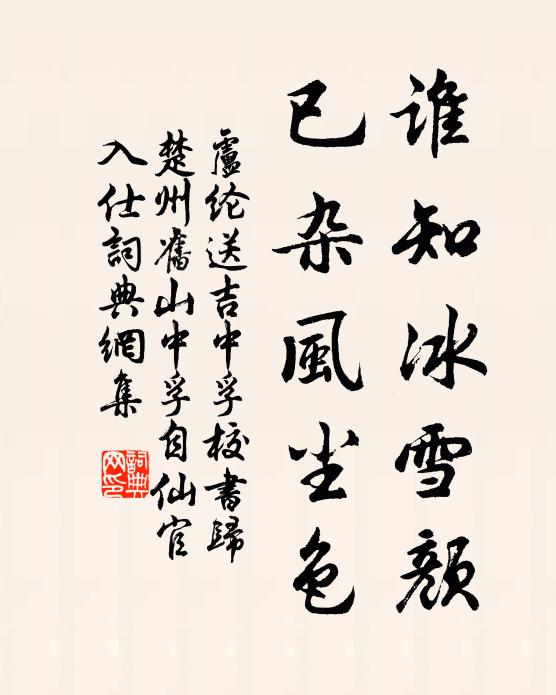 谁知冰雪颜
已杂風尘色
盧纶送吉中孚校書歸
楚州舊山中孚自仙官
入仕詞典網集
詞典网印